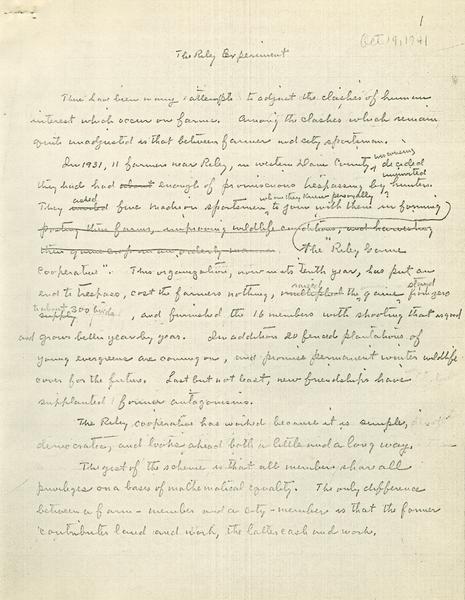 1
Oct 19, 1941
The Riley Experiment
There have been many attempts to adjust the clashes of human
interest which occur on farms. Among the clashes which remain
quite unadjusted is that between farmer and city sportsman.
In 1931, 11 farmers near Riley, in western Dane County, decided
they had had about enough of promiscuous trespassing by uninvited hunters.
They asked five Madison sportsmen, whom they knew personally, to join with them in forming
posting their farms, improving wildlife conditions, and harvesting
their game crop in an orderly manner. the "Riley Game
Cooperative". This organization, now in its tenth year, has put an
end to trespass, cost the farmers nothing, raised the game from zero
supply to about 300 birds, and furnished the 16 members with shooting that is good
and grows better year by year. In addition 20 fenced plantations of
young evergreens are coming on, and promise permanent winter wildlife
cover for the future. Last but not least, new friendships have
supplanted former antagonisms.
The Riley cooperative has worked because it is simple,
democratic, and looks ahead both a little and a long way.
The gist of the scheme is that all members share all
privileges on a basis of mathematical equality. The only difference
between a farm-member and a city-member is that the former
contributes land and work, the latter cash and work.